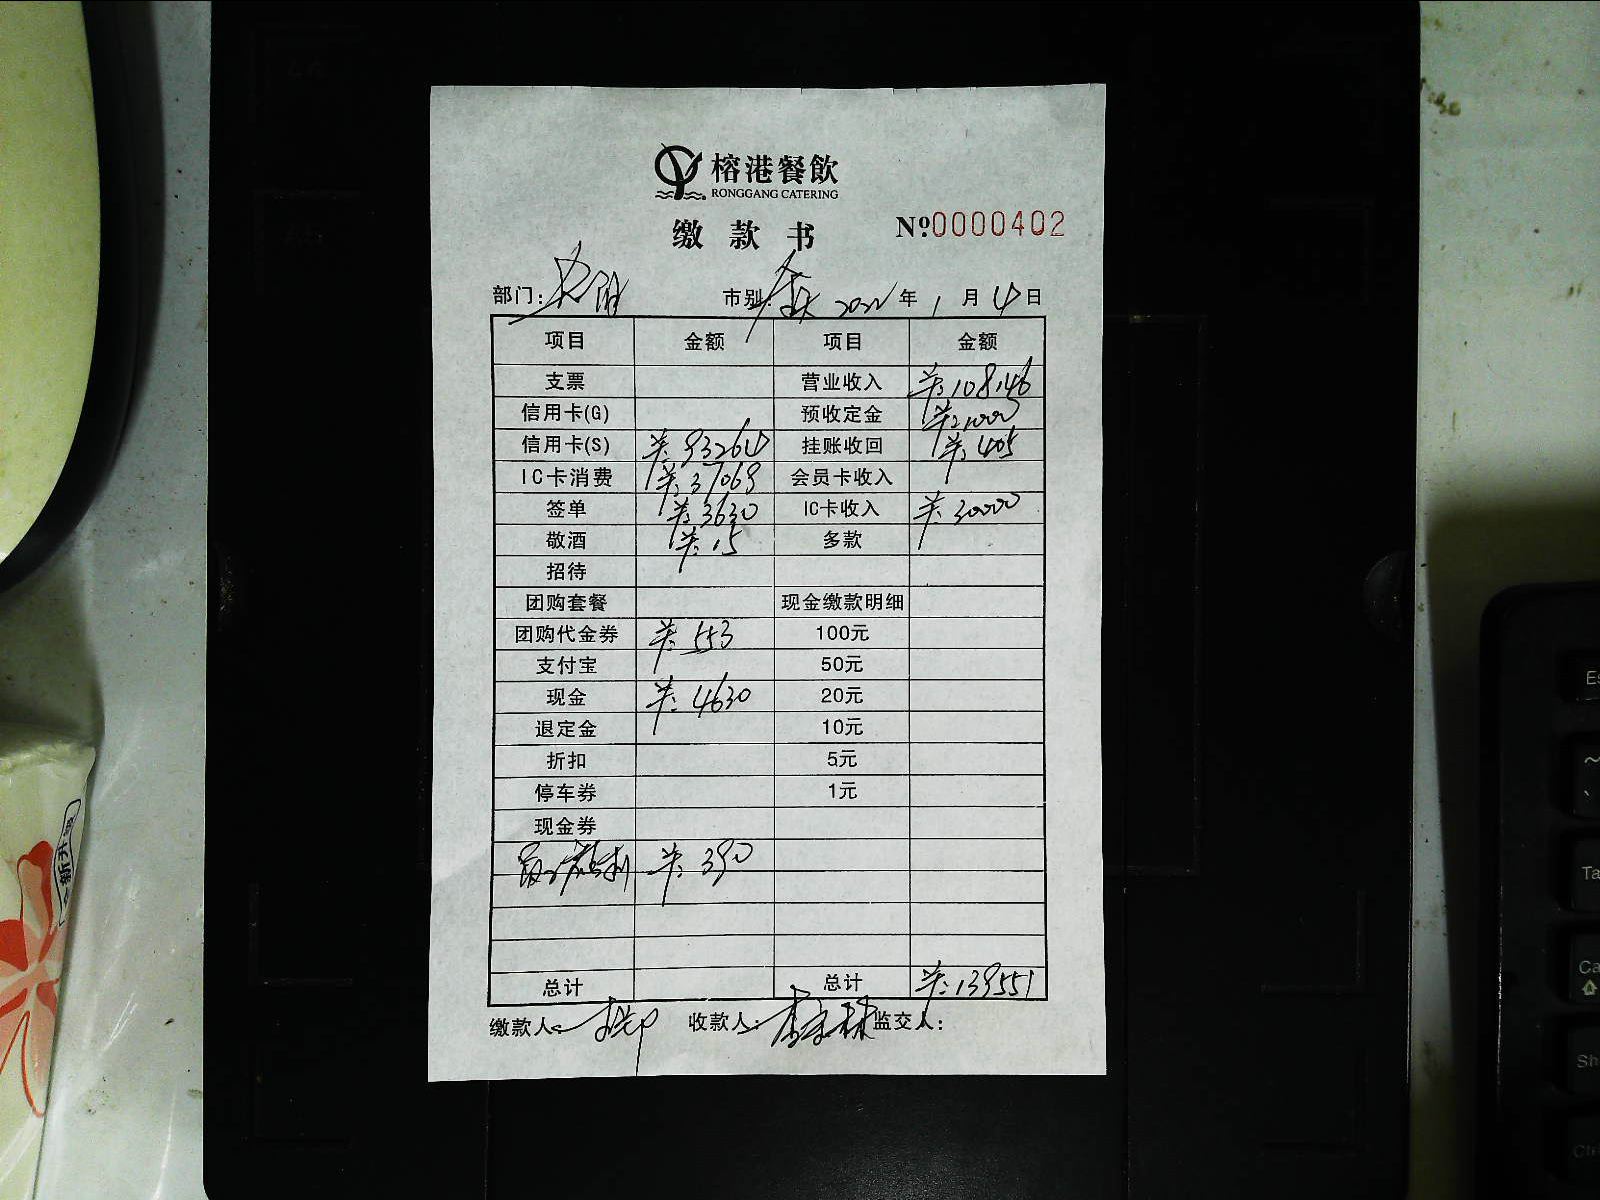 榕港餐飲
RONGGANG CATERING
缴款书 №0000402
部门： 市别： 2022年1月4日
项目 金额 项目 金额
支票 营业收入 ¥:108146
信用卡(G) 预收定金 ¥:1000
信用卡(S) ¥:93264 挂账收回 ¥:405
IC卡消费 ¥:37069 会员卡收入
签单 ¥:3630 IC卡收入 ¥:30000
敬酒 ¥:15 多款
招待
团购套餐 现金缴款明细
团购代金券 ¥:553 100元
支付宝 50元
现金 ¥:4630 20元
退定金 10元
折扣 5元
停车券 1元
现金券
¥:390
总计 总计 ¥:139551
缴款人： 收款人： 监交人：